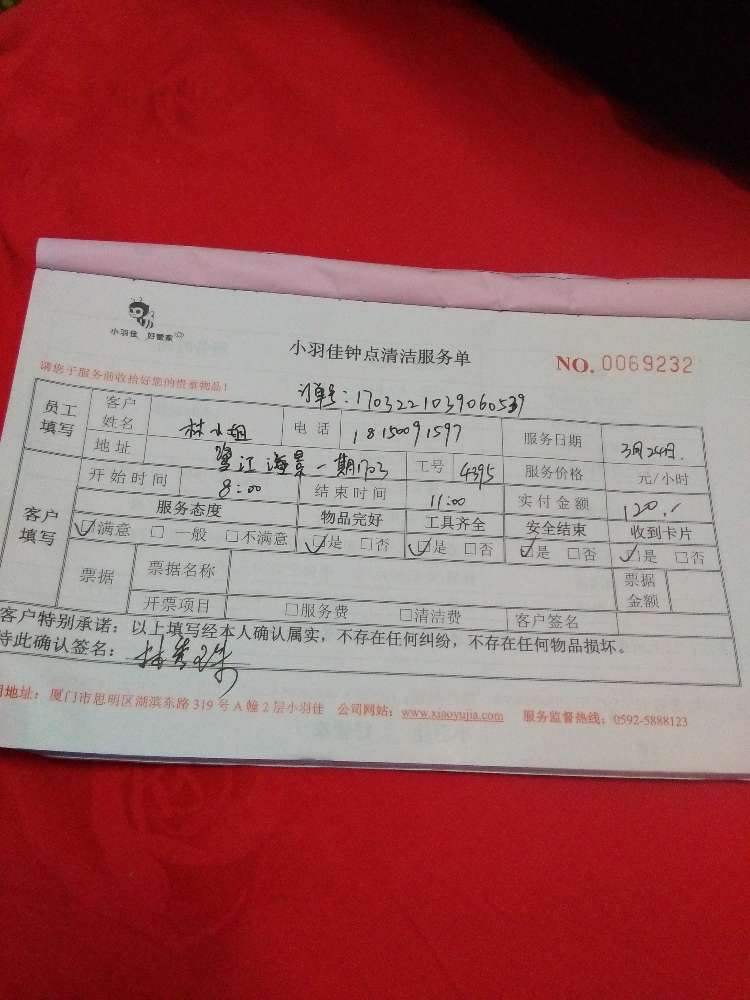 小羽佳 好管家
小羽佳钟点清洁服务单
NO. 0069232
请您于服务前收拾好您的贵重物品！
订单号：1703221039060539
员工填写 客户姓名 林小姐 电话 18150091597 服务日期 3月24日.
地址 鹭江海景一期1703 工号 4395 服务价格 元/小时
客户填写 开始时间 8:00 结束时间 11:00 实付金额 120.-
服务态度 物品完好 工具齐全 安全结束 收到卡片
☑满意 □一般 □不满意 ☑是 □否 ☑是 □否 ☑是 □否 ☑是 □否
票据 票据名称 票据金额
开票项目 □服务费 □清洁费 客户签名
客户特别承诺：以上填写经本人确认属实，不存在任何纠纷，不存在任何物品损坏。
特此确认签名：
司地址：厦门市思明区湖滨东路319号A幢2层小羽佳 公司网站：www.xiaoyujia.com 服务监督热线：0592-5888123